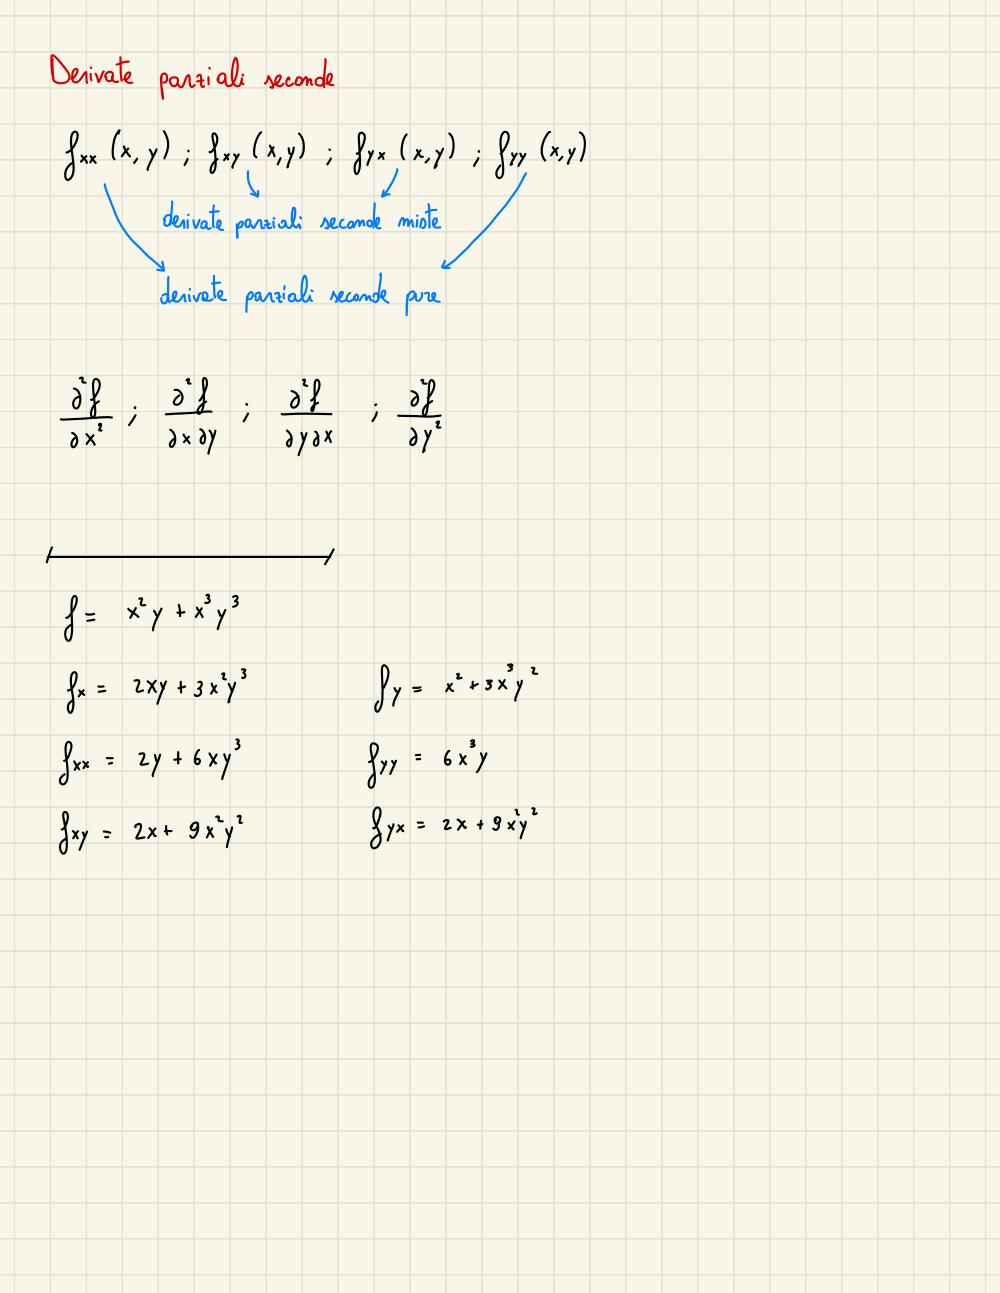 Derivate parziali seconde
f_xx (x, y) ; f_xy (x,y) ; f_yx (x,y) ; f_yy (x,y)
derivate parziali seconde miste
derivate parziali seconde pure
∂²f/∂x² ; ∂²f/∂x∂y ; ∂²f/∂y∂x ; ∂²f/∂y²
f = x²y + x³y³
f_x = 2xy + 3x²y³ f_y = x² + 3x³y²
f_xx = 2y + 6xy³ f_yy = 6x³y
f_xy = 2x + 9x²y² f_yx = 2x + 9x²y²